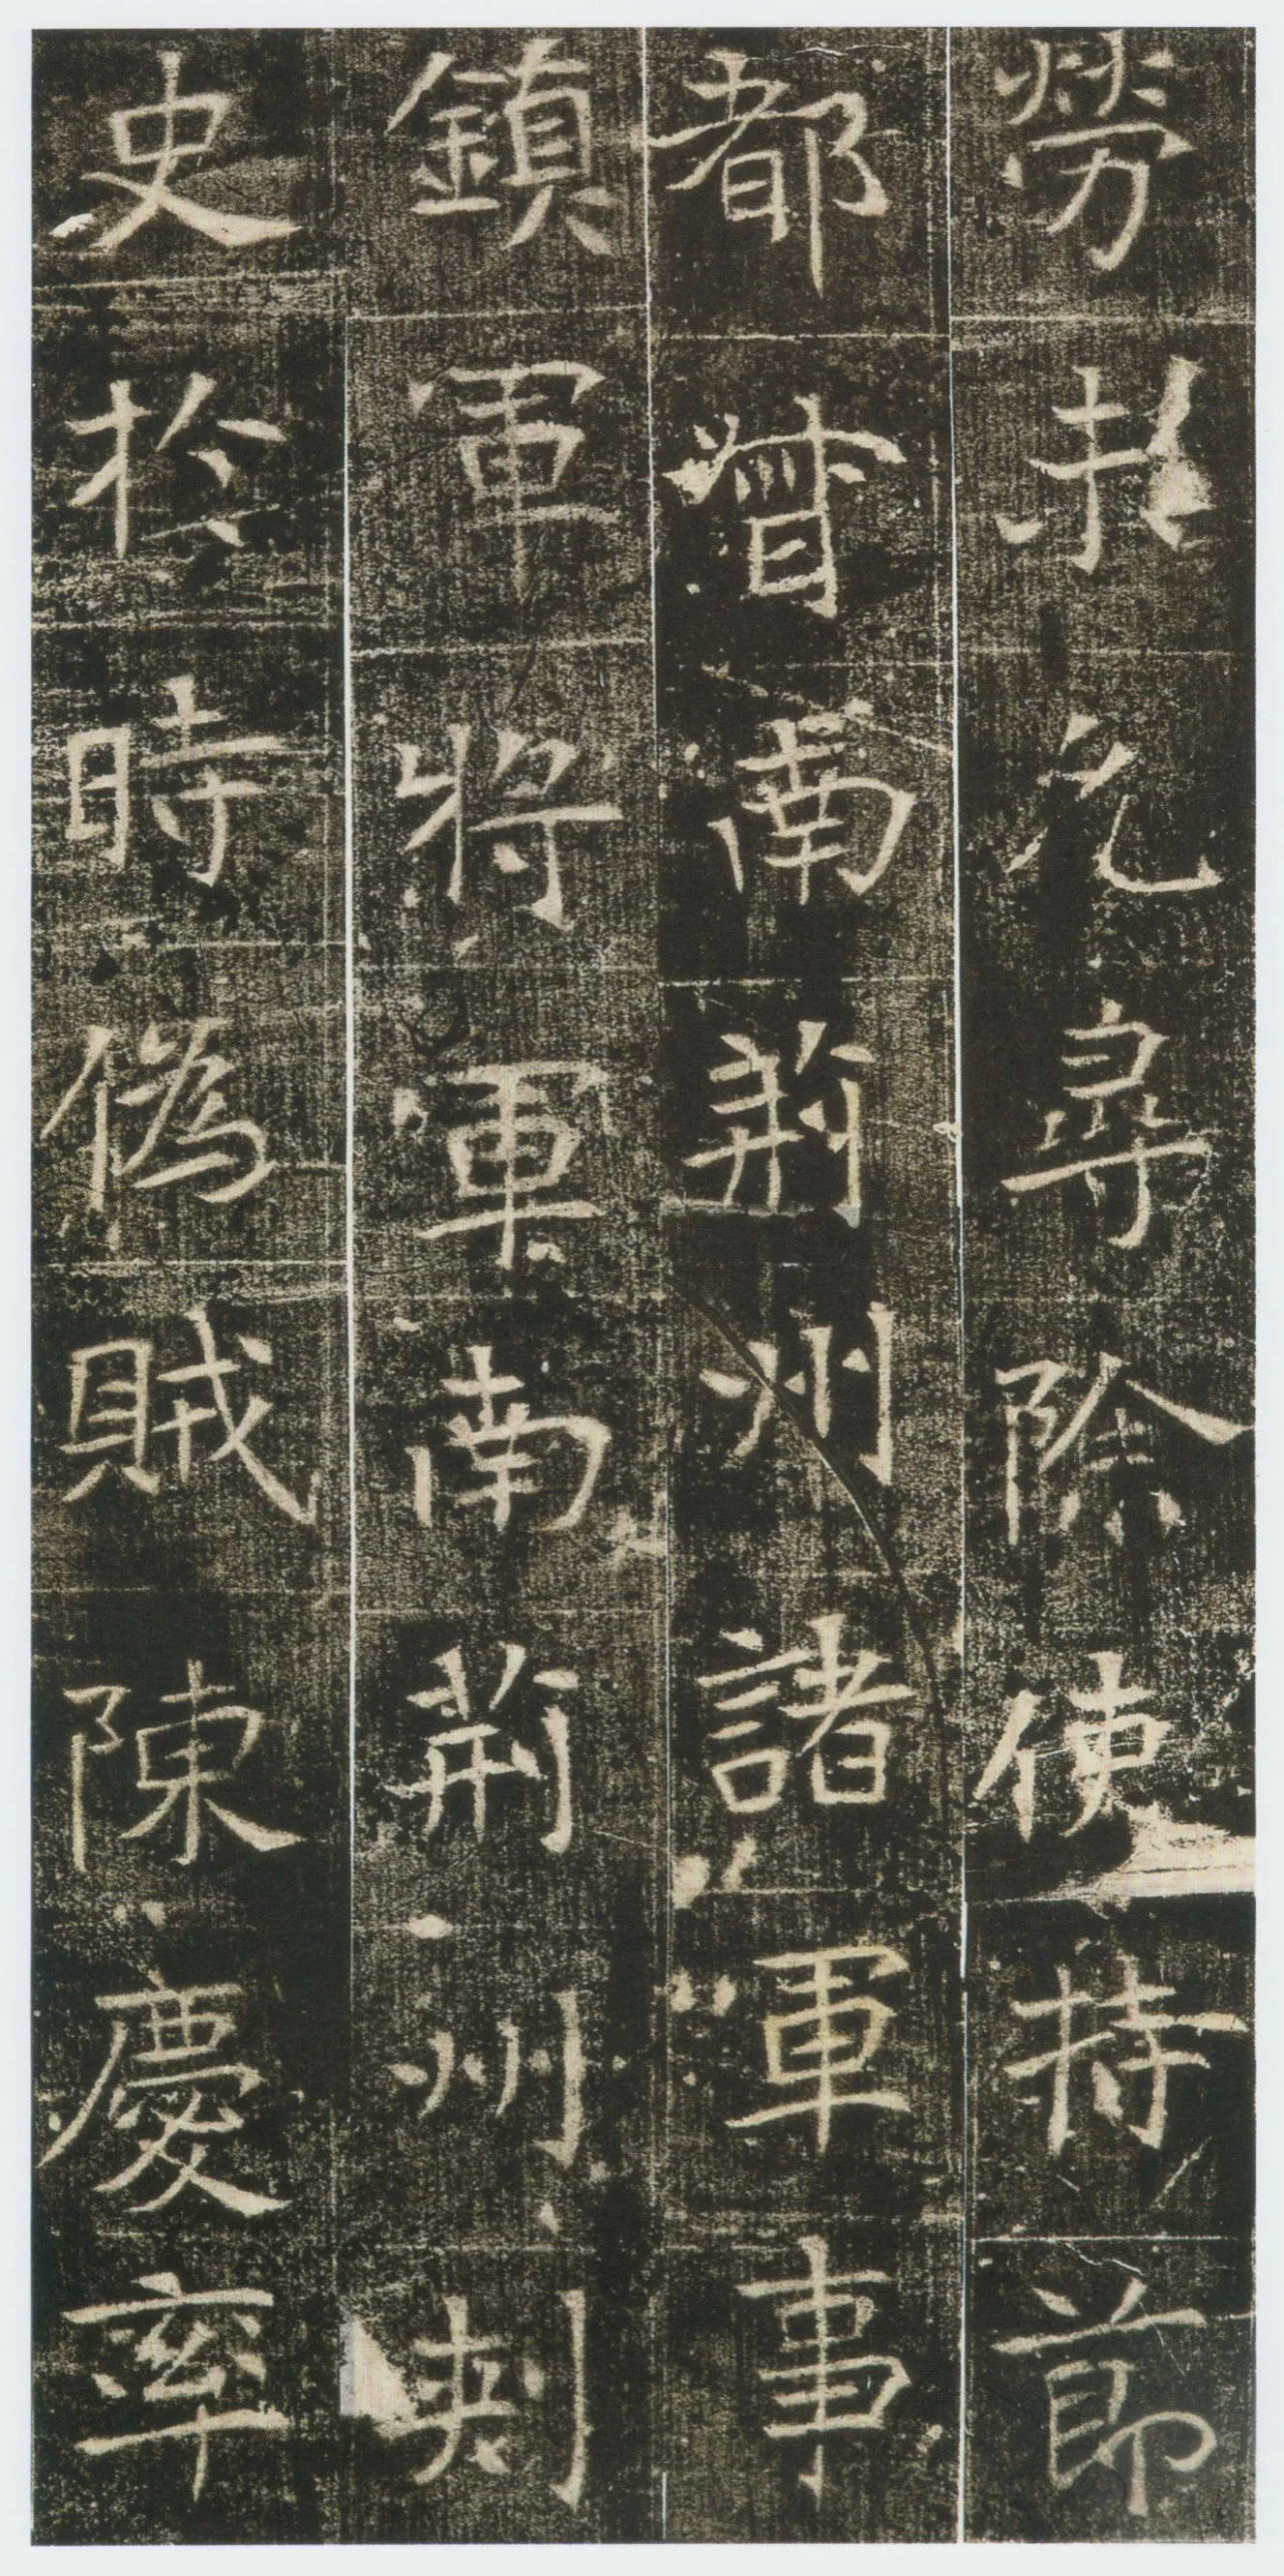 勞於允尋除使持節
都督南荊州諸軍事
鎮軍將軍南荊州刺
史於時偽賊陳慶率